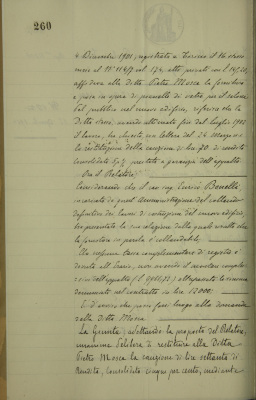 260
4 Dicembre 1901, registrato a Firenze il 16 stesso
mese al N° vol. 172, atti privati con £
affidava alla Ditta Pietro Mosca la fornitura
e posa in opera di di vetro per il salone
del pubblico nel nuovo edificio, riferisce che la
Ditta stessa, avendo ultimato fin dal Luglio 1902
il lavoro, ha chiesto con lettera del 26 Maggio
la restituzione della cauzione di lire 70 di rendita
consolidato 5% prestata a garanzia dell'appalto
Ora il Relatore:
Considerando che il sig. ing. Enrico Bonelli
incaricato da quest'Amministrazione del collaudo
definitivo dei lavori di costruzione del nuovo edificio,
ha presentato la sua relazione dalla quale risulta che
la fornitura in parola è collaudabile;
Che nessuna tassa complementare di registro è
dovuta all'Erario, non avendo l'
dell'appalto oltrepassato la somma
nel contratto in lire
È d'avviso che possa farsi luogo alla domanda
della Ditta Mosca.
La Giunta, adottando la proposta del Relatore,
unanime delibera di restituire alla Ditta
Pietro Mosca la cauzione di lire settanta di
Rendita, Consolidato cinque per cento, mediante